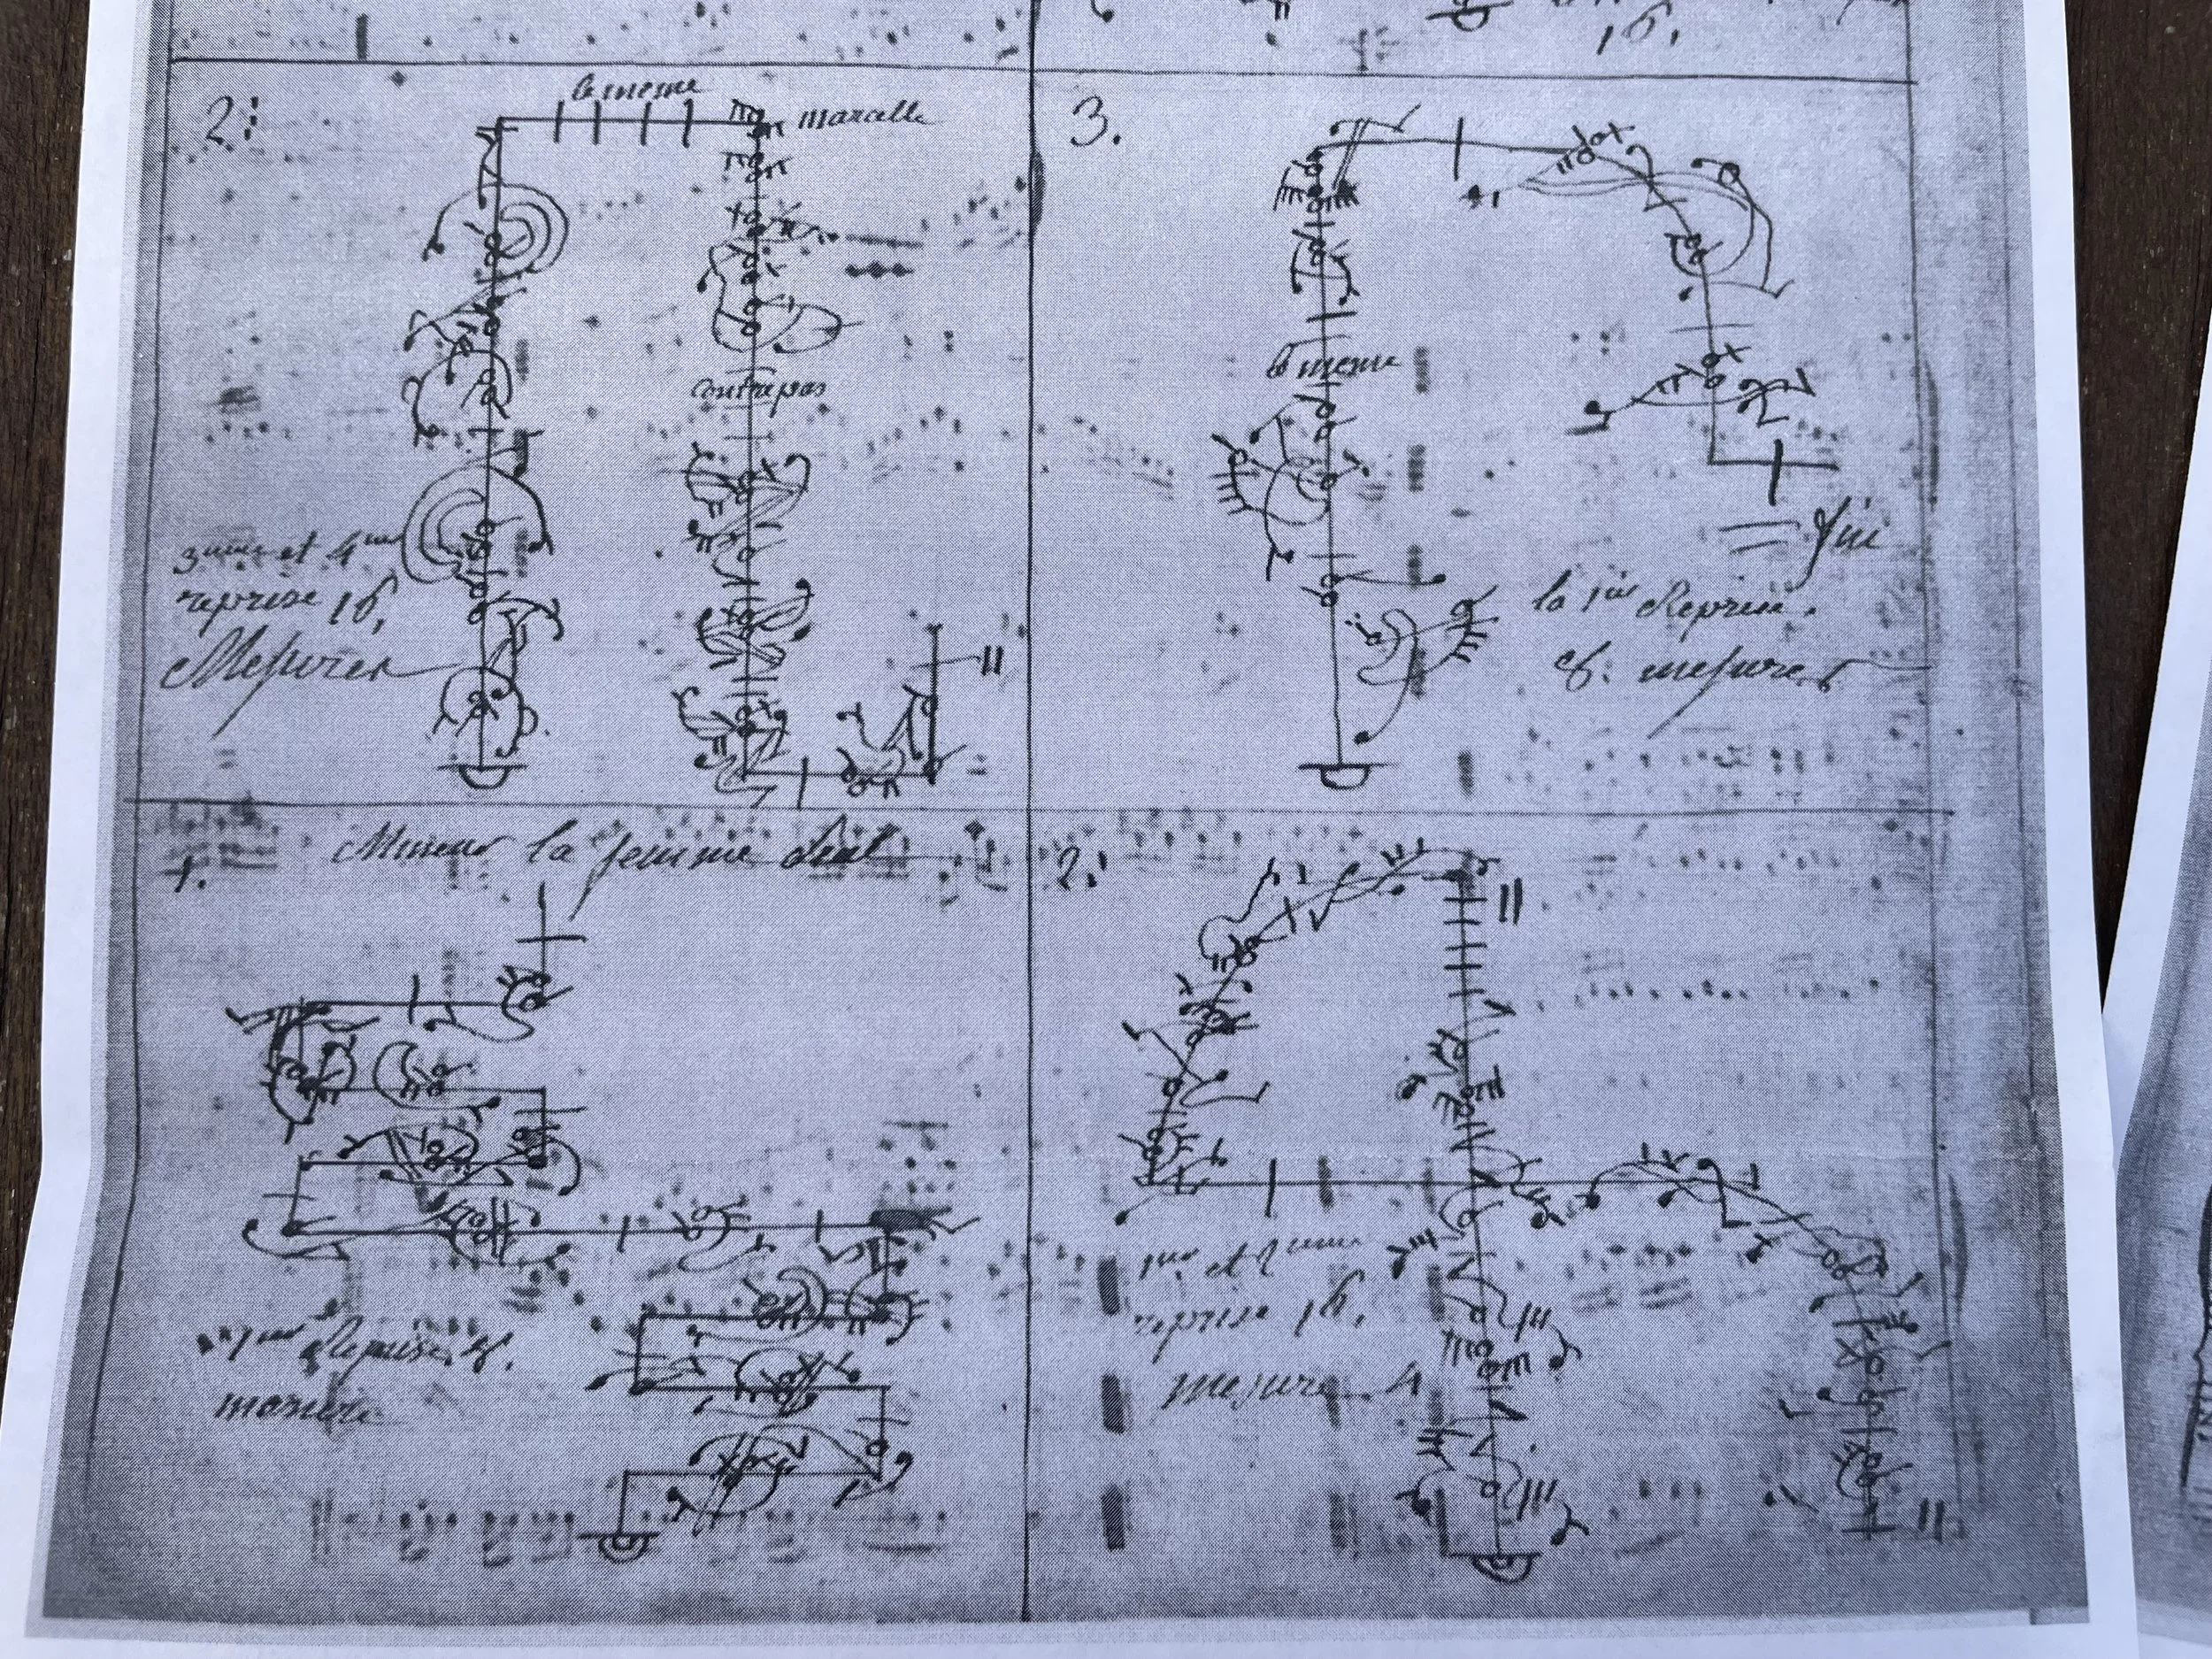 16,
2:
le meme
marcelle
contrepas
3eme et 4eme
reprise 16,
Mesures
3.
le meme
fin
la 1ere Reprise.
8. mesures
1.
Mineur la femme seul
1ere Reprise, 8.
2.
1ere et 2eme
reprise 16,
mesure